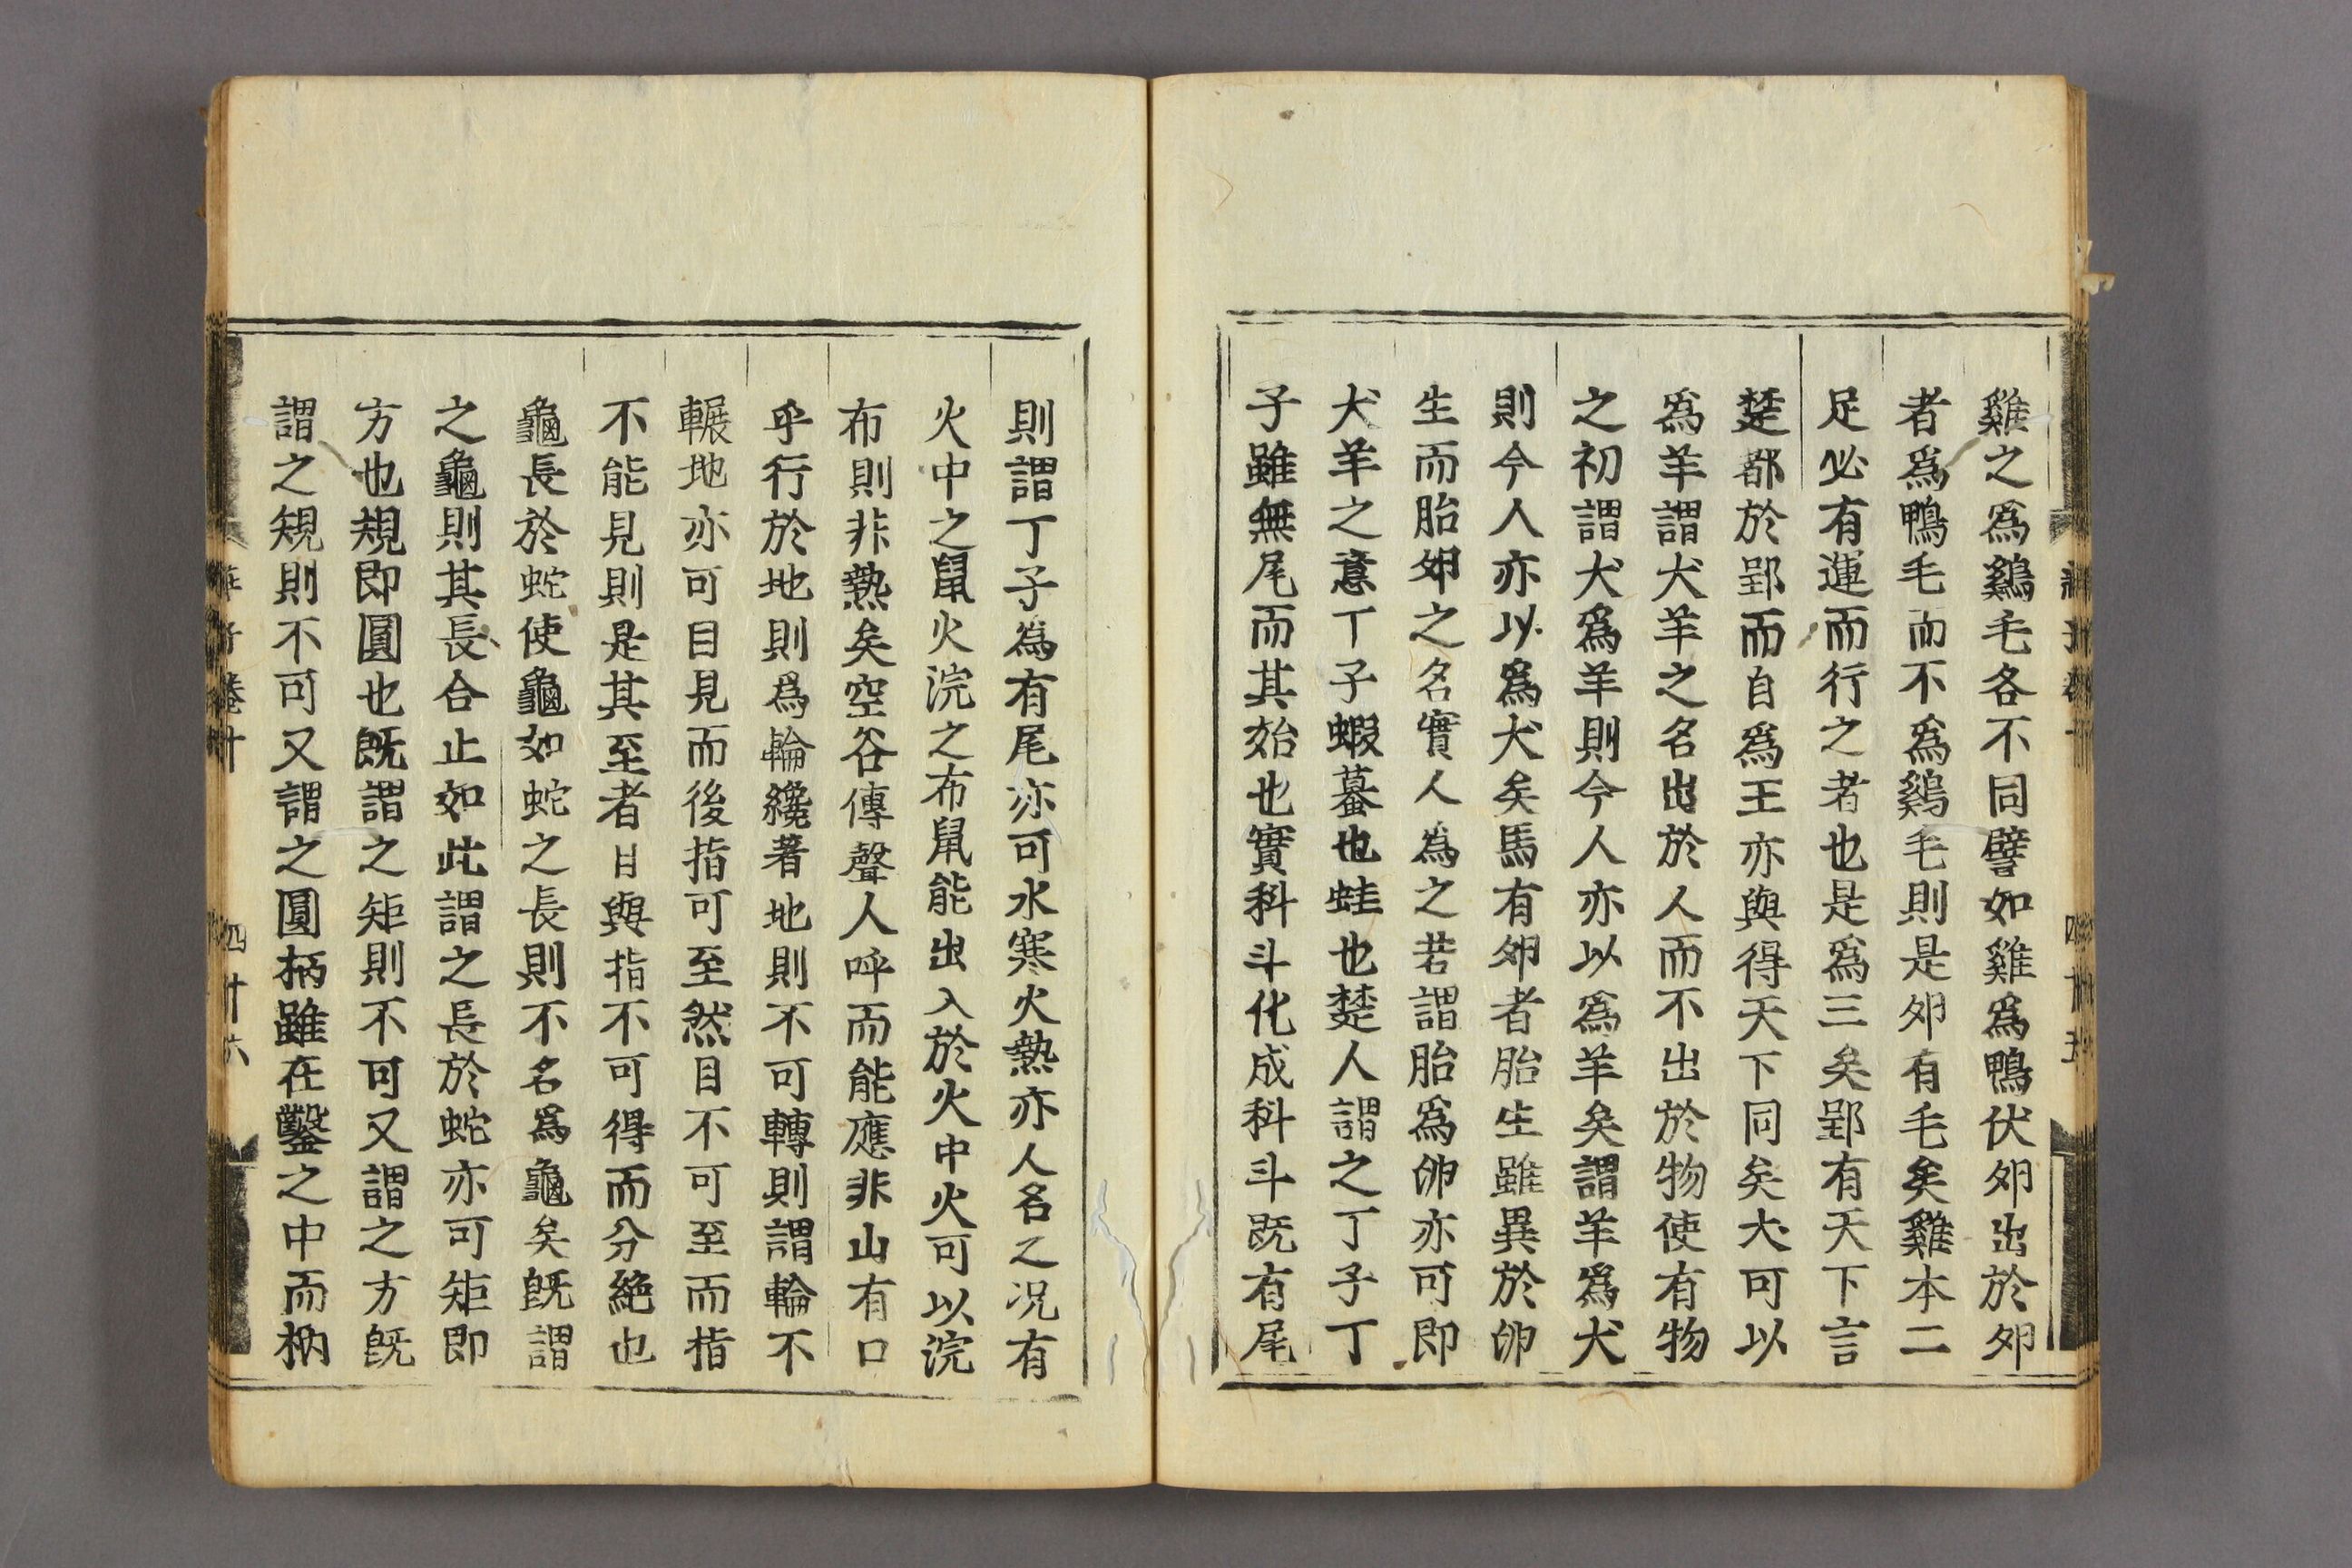 雞之爲鷄毛各不同譬如雞爲鴨伏卵出於卵
者爲鴨毛而不爲鷄毛則是卵有毛矣雞本二
足必有運而行之者也是爲三矣郢有天下言
楚都於郢而自爲王亦與得天下同矣犬可以
爲羊謂犬羊之名出於人而不出於物使有物
之初謂犬爲羊則今人亦以爲羊矣謂羊爲犬
則今人亦以爲犬矣馬有卵者胎生雖異於卵
生而胎卵之名實人為之若謂胎爲卵亦可即
犬羊之意丁子蝦蟇也蛙也楚人謂之丁子丁
子雖無尾而其始也實科斗化成科斗既有尾
則謂丁子為有尾亦可水寒火熱亦人名之况有
火中之鼠火浣之布鼠能出入於火中火可以浣
布則非熱矣空谷傳聲人呼而能應非山有口
乎行於地則爲輪纔著地則不可轉則謂輪不
輾地亦可目見而後指可至然目不可至而指
不能見則是其至者目與指不可得而分絶也
龜長於蛇使龜如蛇之長則不名爲龜矣旣謂
之龜則其長合止如此謂之長於蛇亦可矩即
方也規即圓也旣謂之矩則不可又謂之方旣
謂之規則不可又謂之圓柄雖在鑿之中而柄
莊子卷十
四十六